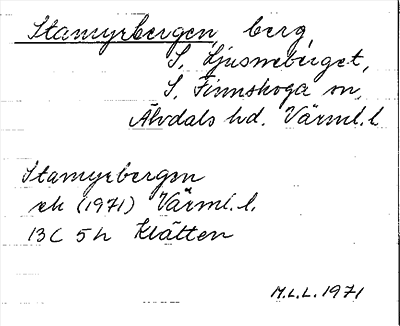 Stamyrbergen, berg,
S. Ljusneberget,
S. Finnskoga sn,
Älvdals hd. Värml. l.
Stamyrbergen
ek (1971) Värml. l.
13C 5h Klätten
M.L.L. 1971